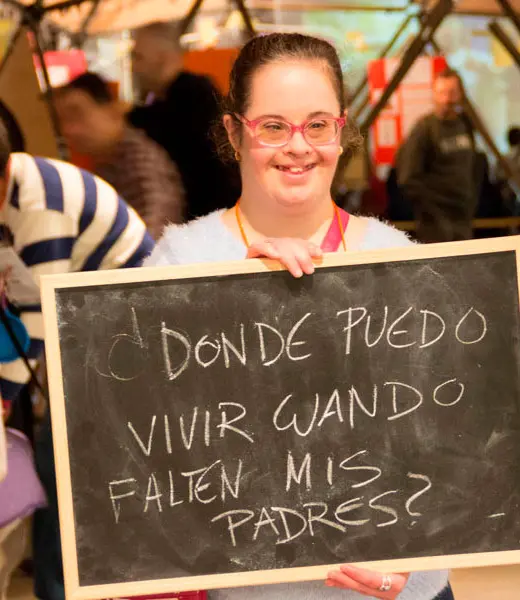 ¿DONDE PUEDO
VIVIR CUANDO
FALTEN MIS
PADRES?